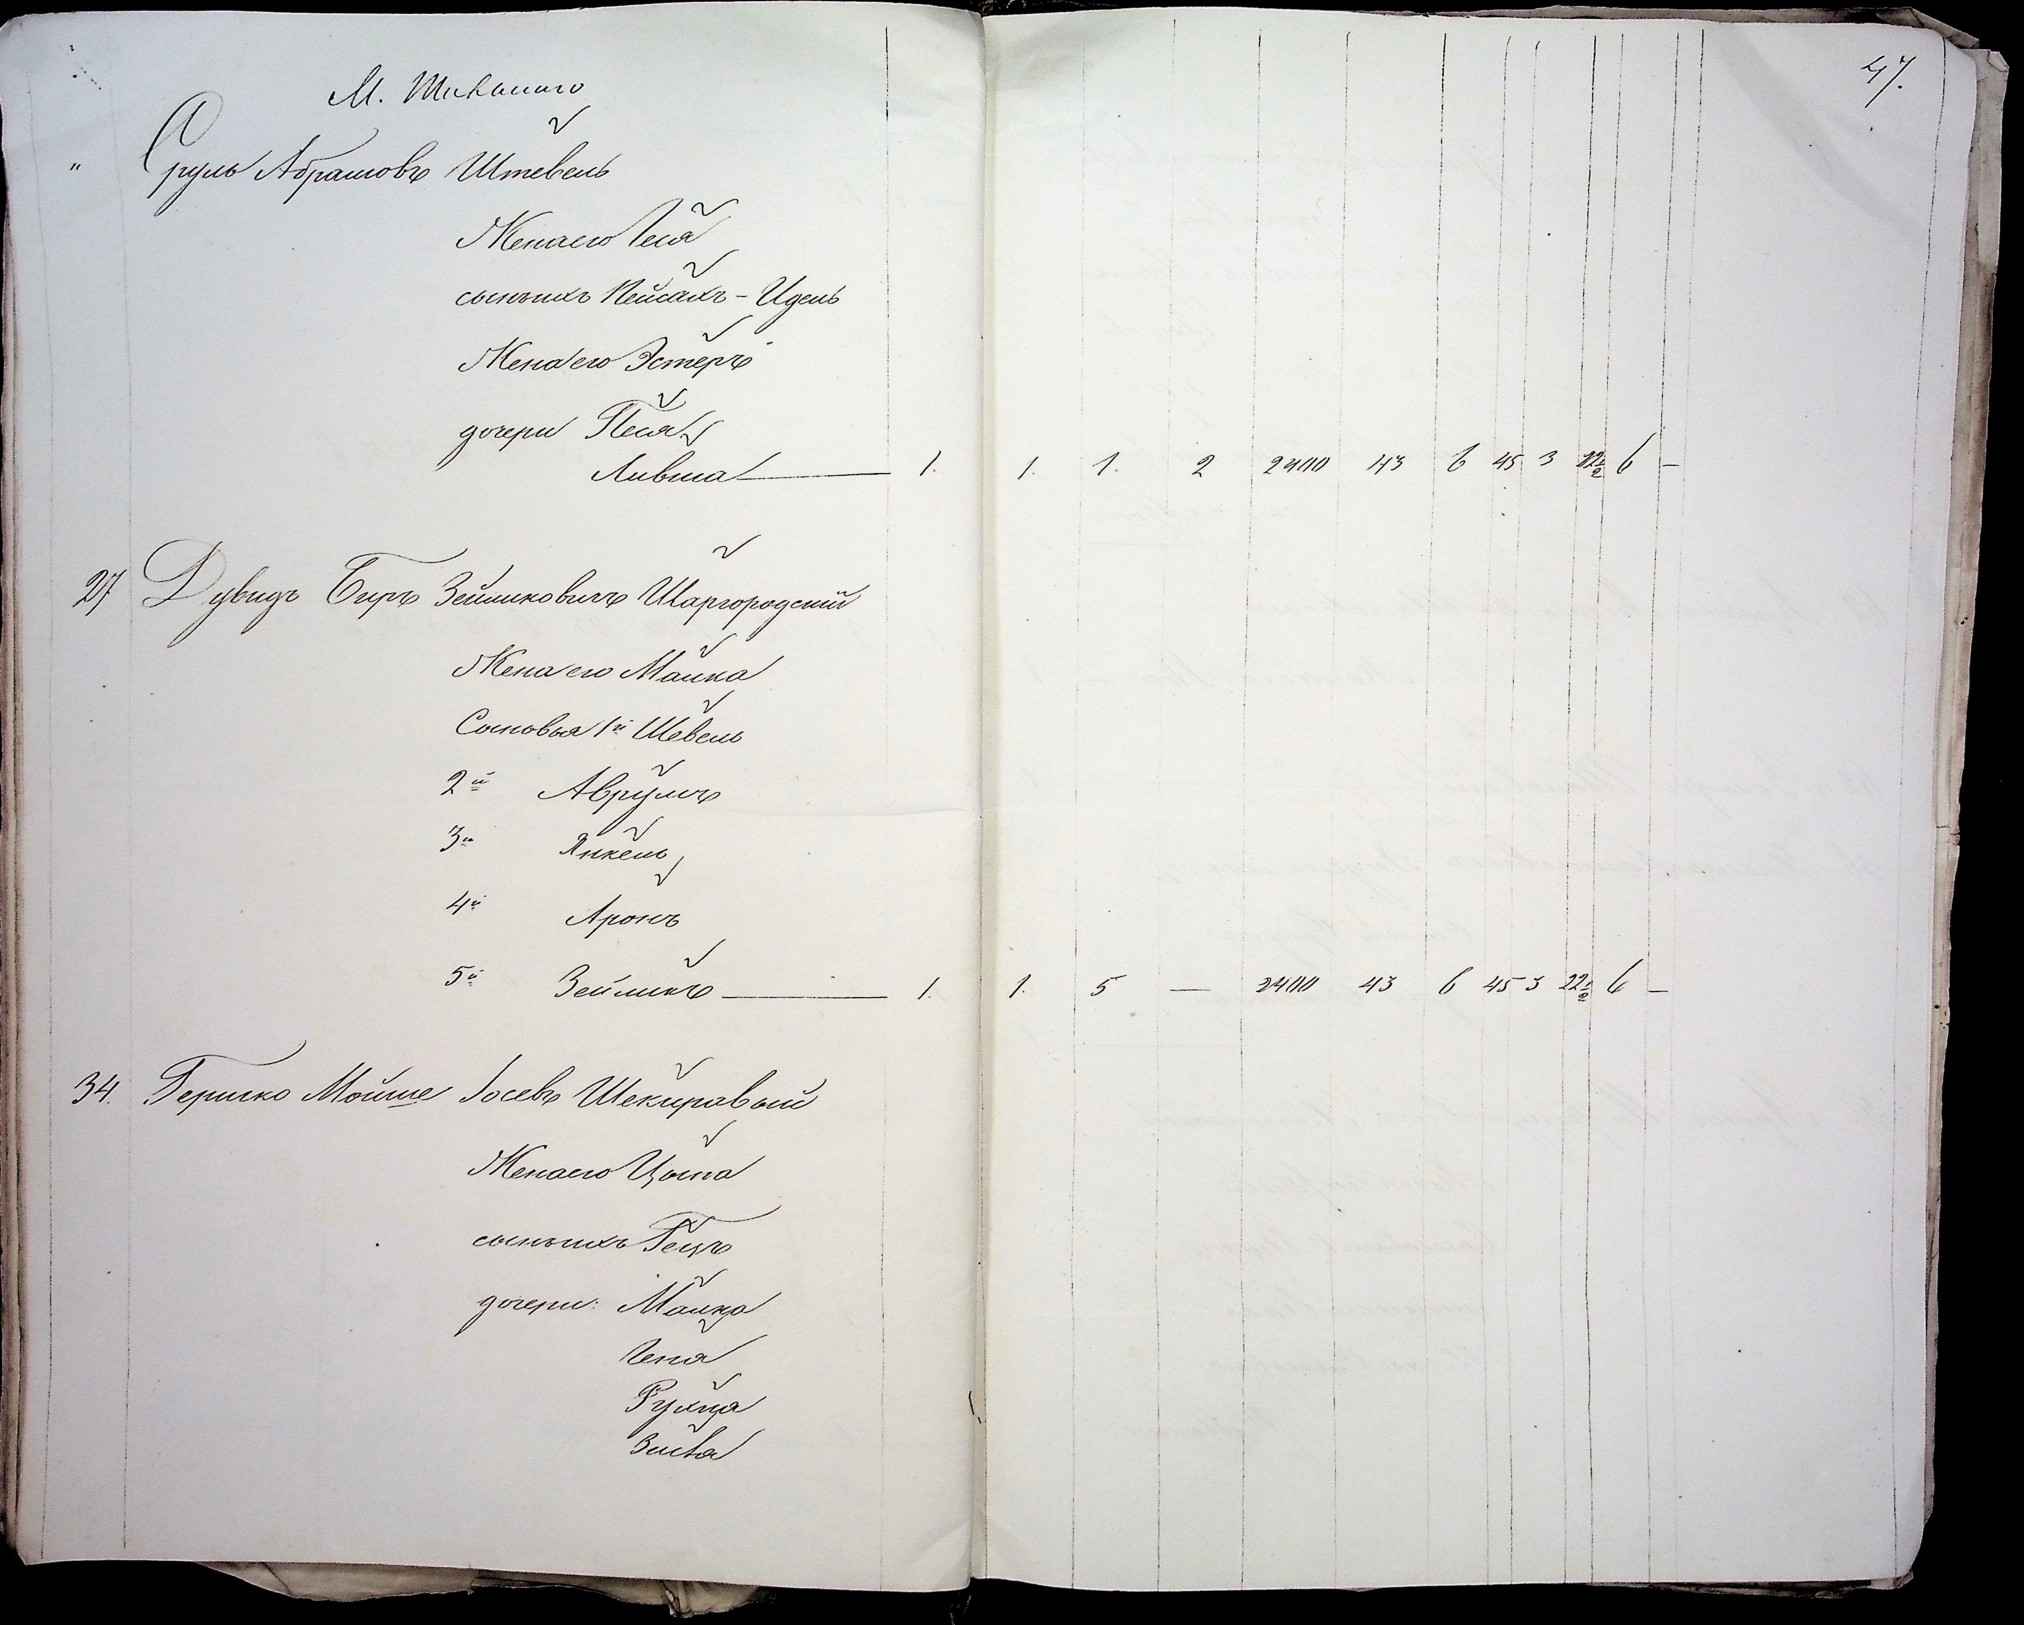 47.
М. Шиканаго
" Сруль Абрамовъ Штевель
Жена его Лея
сынъ ихъ Пейсахъ - Идель
Жена его Эстеръ
дочери Песя
Ливша 1. 1. 1. 2 2400 43 6 45 3 22½ 6 —
27 Дувидъ Беръ Зейликовичъ Шаргородскій
Жена его Малка
Сыновья 1й Шевель
2й Аврумъ
3й Янкель
4й Аронъ
5й Зейликъ 1. 1. 5 — 2400 43 6 45 3 22½ 6 —
34. Гершко Мойше Іосевъ Шекиравый
Жена его Цына
сынъ ихъ Гецъ
дочери: Малка
Ченя
Рухля